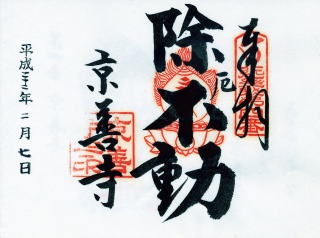 奉拝
除厄不動
京善寺
平成二十二年二月七日